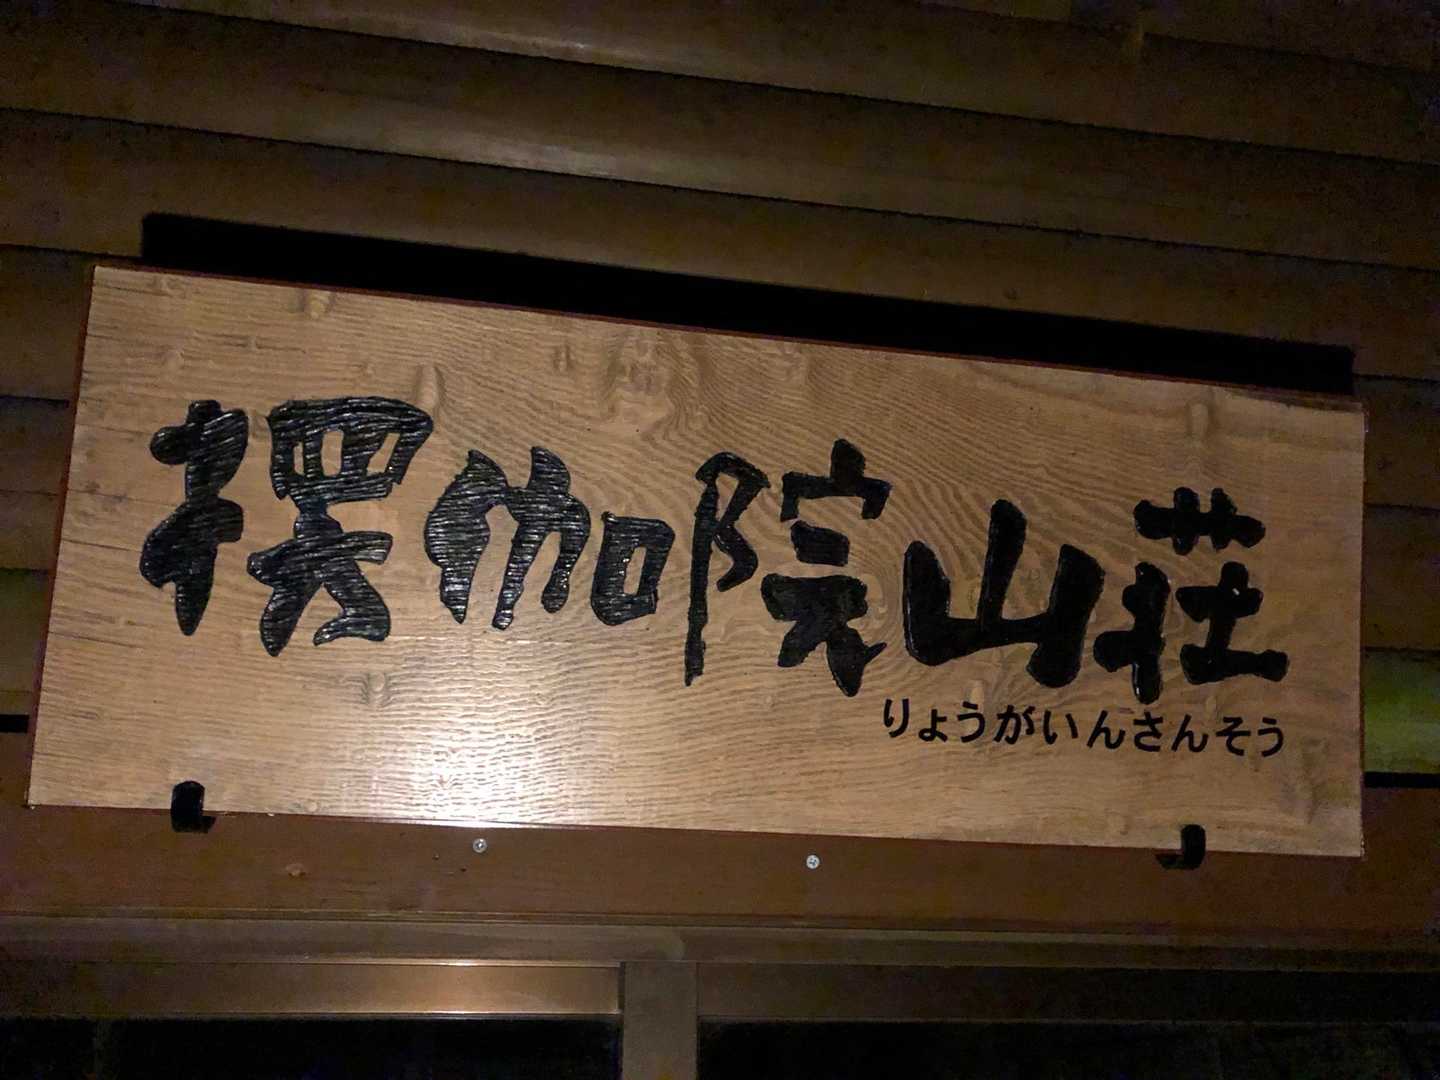 楞伽院山荘
りょうがいんさんそう